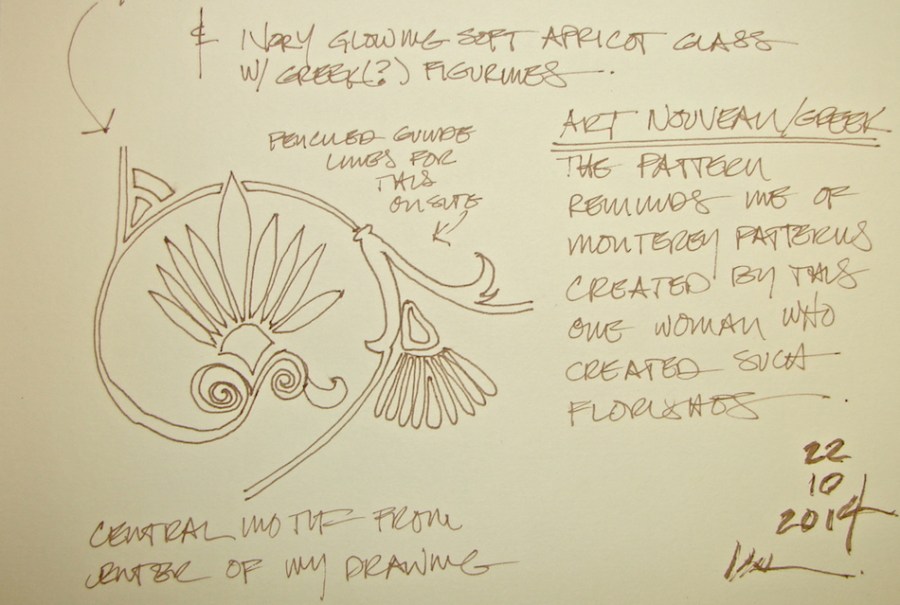 & IVORY GLOWING SOFT APRICOT GLASS
W/ GREEK(?) FIGURINES.
PENCILED GUIDE
LINES FOR
THIS
ONSITE
ART NOUVEAU/GREEK
THE PATTERN
REMINDS ME OF
MONTEREY PATTERNS
CREATED BY THIS
ONE WOMAN WHO
CREATED SUCH
FLORISHES.
22
10
2014
CENTRAL MOTIF FROM
CENTER OF MY DRAWING